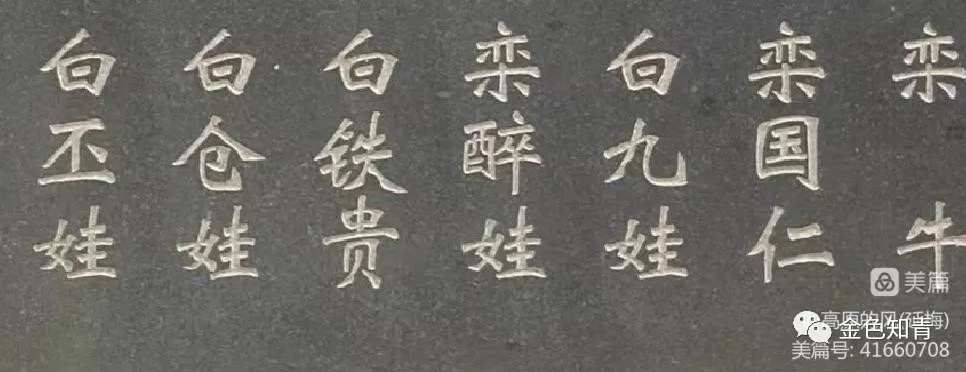 栾牛
栾国仁
白九娃
栾醉娃
白铁贵
白仓娃
白丕娃
美篇
高原的风
金色知青
美篇号: 41660708